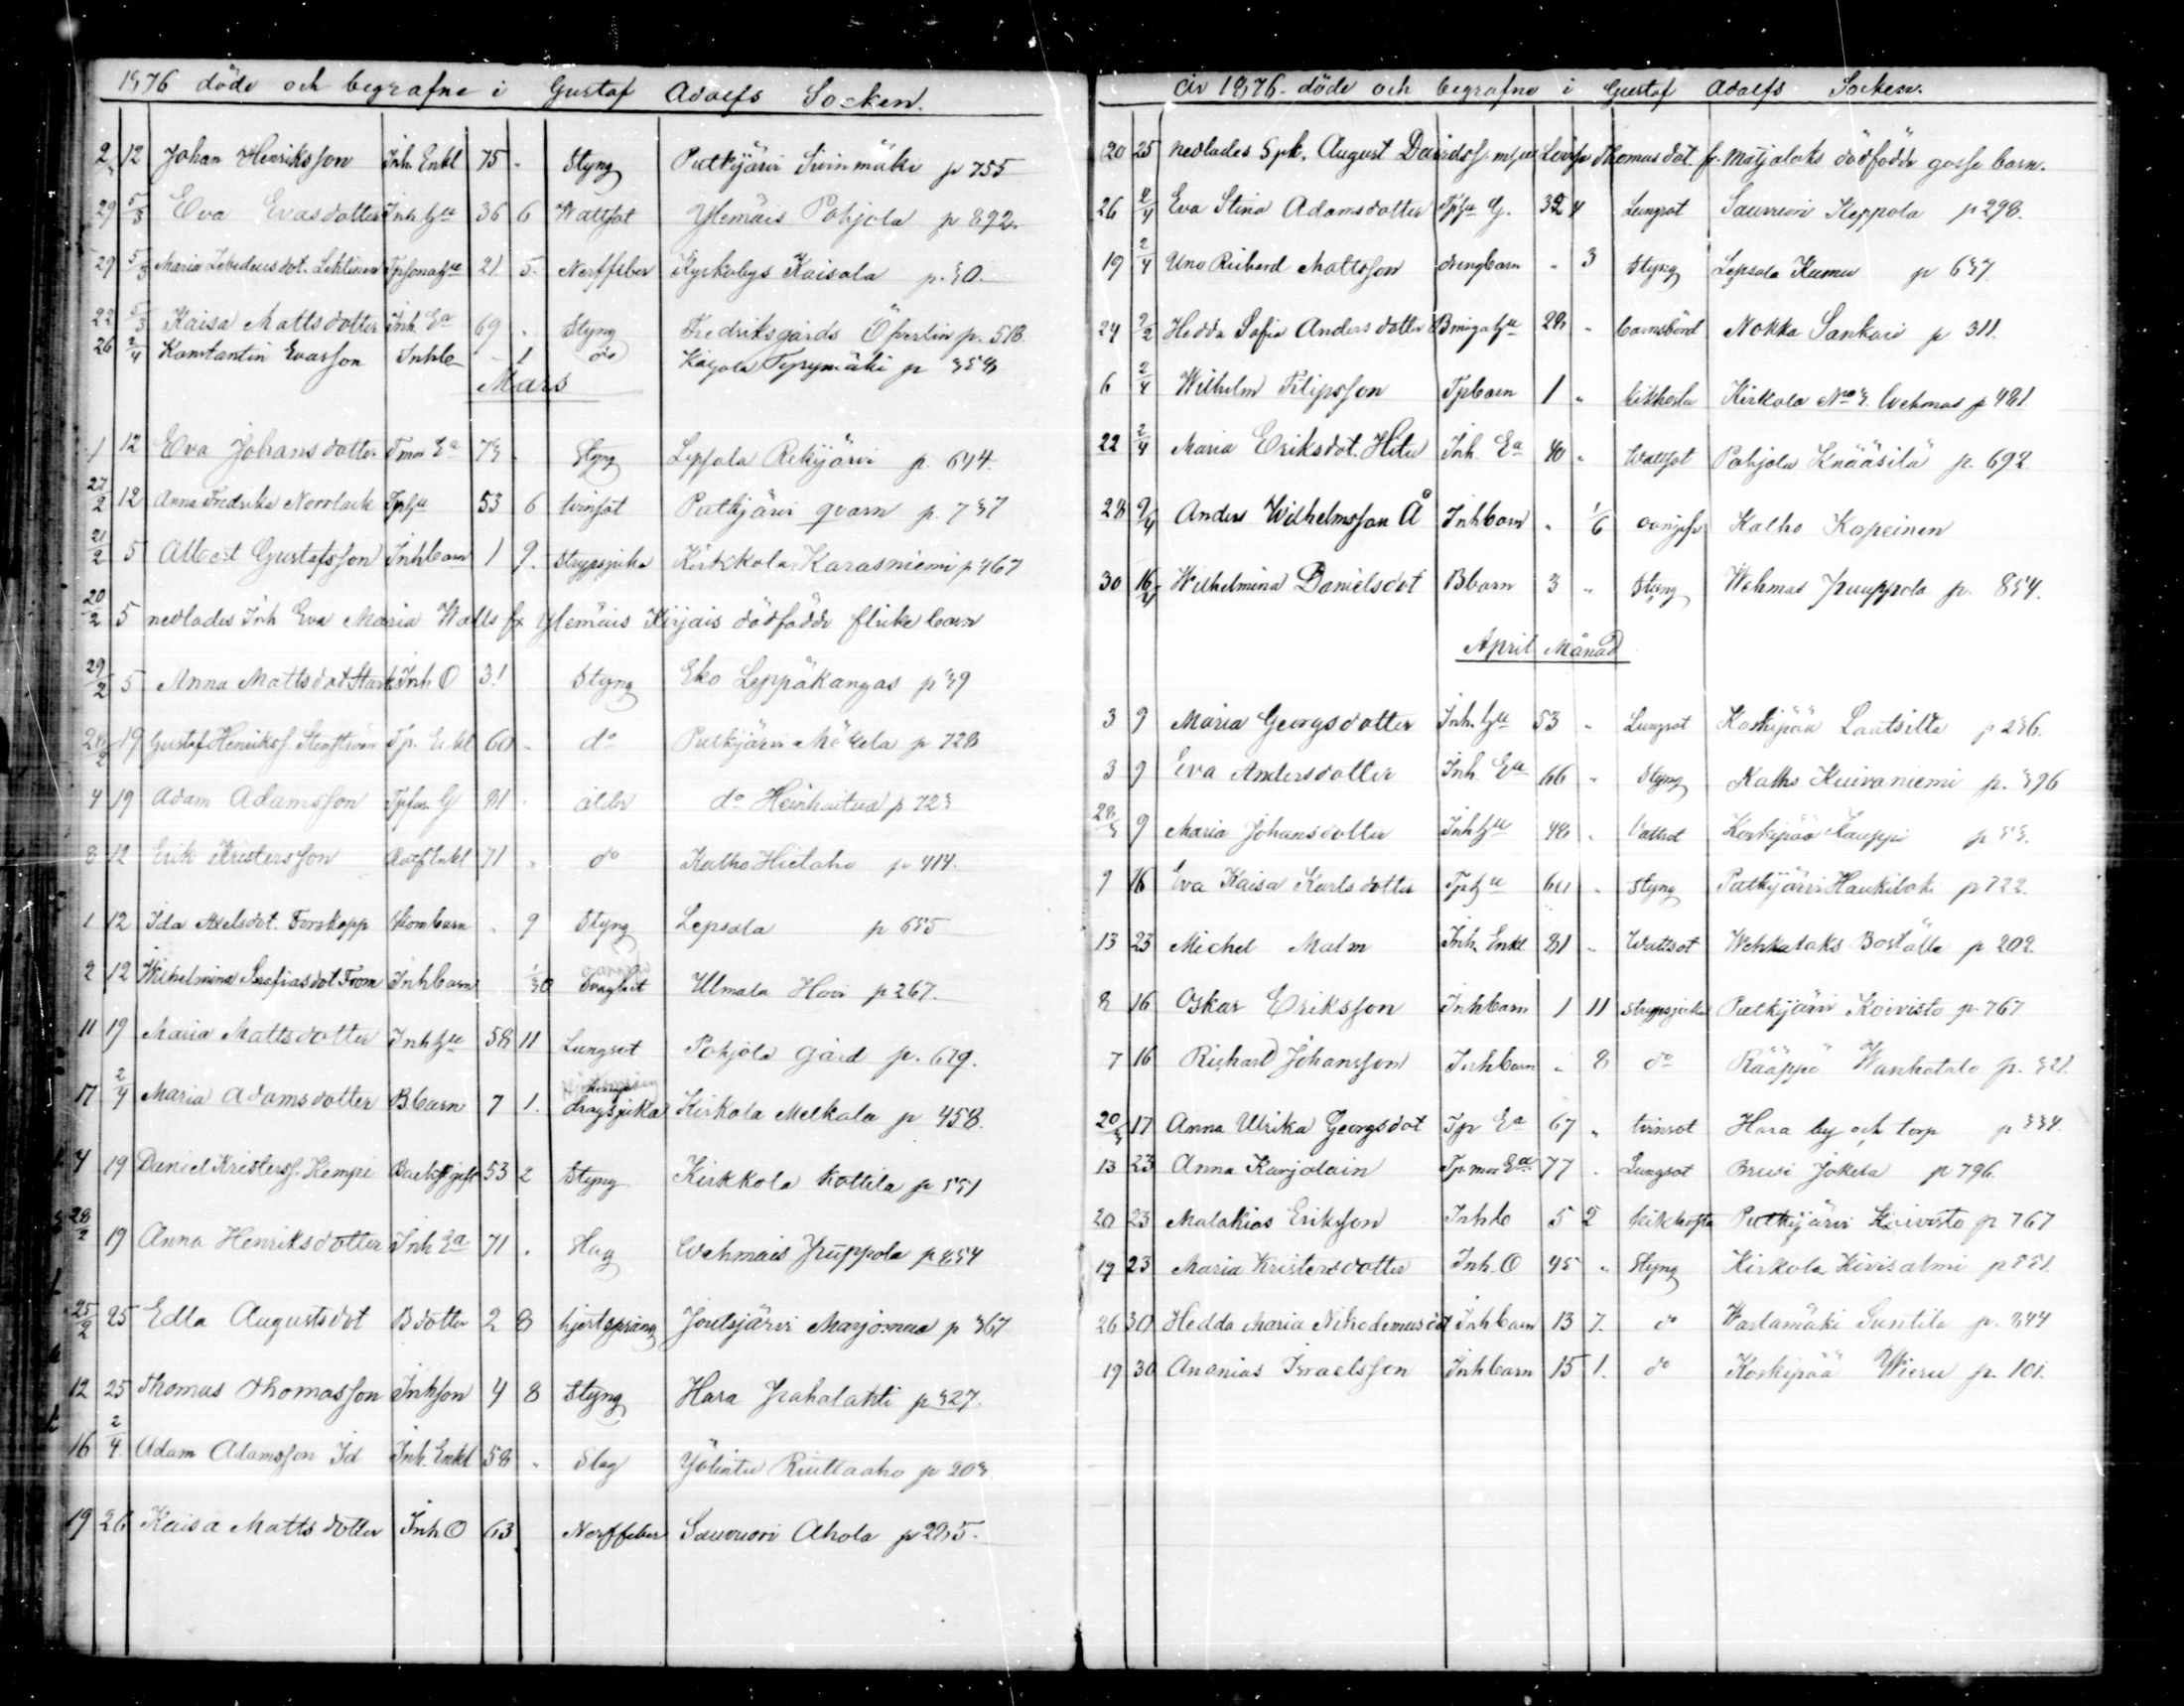 1876 döde och begrafne i Gustaf Adolfs Socken.
2 12 Johan Henriksson Inh. Enkl 75 " Styng Putkijärvi p 755
29 5/3 Eva Evasdotter Inh hu 36 6 Wattsot Ylemäis Pohjola p 892.
29 5/3 Maria dot. Lehtinen 21 5. Nerffeber Kyrkobys Kaisala p. 30.
22 5/3 Kaisa Mattsdotter Inh. Ea 69 " Styng Fredriksgårds p. 518.
26 2/4 Konstantin Evasson Inhb " 1 do
Mars
1 12 Eva Johansdotter Ea 73 " Styng Lepsala Rekijärvi p. 644.
27/2 12 Anna Fredrika Norrlack Tphu 53 6 tvinsot Putkijärvi qvarn p. 737
21/2 5 Albert Gustafsson Inhbarn 1 9. Strypsjuka Kirkkola Karasniemi p 467
20/2 5 nedlades Inh Eva Maria fr Ylemäis dödfödde flickebarn
29/2 5 Anna Mattsdot Stark Inh O 31 Styng Eko Leppäkangas p 39
28/2 19 Gustaf Henrikss. Tp. Enkl 60 " do Putkijärvi p 728
4 19 Adam Adamsson 81 " ålder do p 723
8 12 Erik Kristersson Enkl 71 " do Kalho Hietaho p 414.
1 12 Ida Axelsdot. " 9 Styng Lepsala p 635
2 12 Wilhelmina From Inhbarn 1/30 Svaghet Ulmala Hovi p 267.
11 19 Maria Mattsdotter Inh hu 58 11 Lungsot Pohjola gård p. 679.
17 2/4 Maria Adamsdotter Bbarn 7 1. dragsjuka Kirkola Melkola p 458.
4 19 Daniel Kristerss. Hempi 53 2 Styng Kirkkola Kottila p 551
28/2 19 Anna Henriksdotter Inh Ea 71 . Slag Wehmais Puppola p 854
25/2 25 Edla Augustsdot Bdotter 2 8 hjertsprång Joutsjärvi Marjomaa p 367
12 25 Thomas Thomasson Inhson 4 8 Styng Hara p 327.
16 2/4. Adam Adamsson Id Inh. Enkl 58 " Slag Riuttaaho p 203
19 26 Kaisa Mattsdotter Inh O 63 Nerffeber Ahola p 285.
år 1876 döde och begrafne i Gustaf Adolfs Socken.
20 25 nedlades Spk. August Davidss. Lovisa Thomasdot. fr. dödfödde gossebarn.
26 2/4 Eva Stina Adamsdotter G. 32 4 Lungsot Keppola p 298.
19 2/4 Uno Richard Mattsson drengbarn " 3 Styng Lepsala Kumu p 637.
24 9/2 Hedda Sofia Andersdotter 28 " barnsbörd Nokka Sankari p 311.
6 2/4 Wilhelm Filipsson Tpbarn 1 " kikhosta Kirkola No 3. p 481
22 2/4 Maria Eriksdot. Inh. Ea 40 " Wattsot Pohjola Knääsilä p. 692.
28 9/4 Anders Wilhelmsson Å Inhbarn " 1/6 Kalho Kapeinen
30 16/4 Wilhelmina Danielsdot Bbarn 3 " Styng Wehmas Puuppola p. 854.
April Månad
3 9 Maria Georgsdotter Inh. hu 53 " Lungsot Koskipää Lautsilta p 236.
3 9 Eva Andersdotter Inh. Ea 66 " Styng Kalho Kuivaniemi p. 396
28/3 9 Maria Johansdotter Inh hu 48 " Vattsot Koskipää Kauppi p 53.
9 16 Eva Kaisa Karlsdotter Tphu 60 " Styng Putkijärvi p 722.
13 23 Michel Malm Inh. Enkl 81 " Wattsot Wehkalaks Boställe p 202.
8 16 Oskar Eriksson Inhbarn 1 11 strypsjuka Putkijärvi Koivisto p. 767
7 16 Richard Johansson Inhbarn " 8 do Rääppö Wanhatalo p. 321.
20/3 17 Anna Ulrika Georgsdot Tp Ea 67 " tvinsot Hara by och torp p 334.
13 23 Anna Karjalain Ea 77 . Lungsot Jokela p 796.
20 23 Malakias Eriksson Inhb 5 2 kikhosta Putkijärvi Koivisto p 767
19 23 Maria Kristersdotter Inh. O 45 " Styng Kirkola Kivisalmi p 551.
26 30 Hedda Maria Nikodemusdot Inhbarn 13 7. do Suntila p. 844
19 30 Ananias Israelsson Inhbarn 15 1. do Koskipää Wieru p. 101.